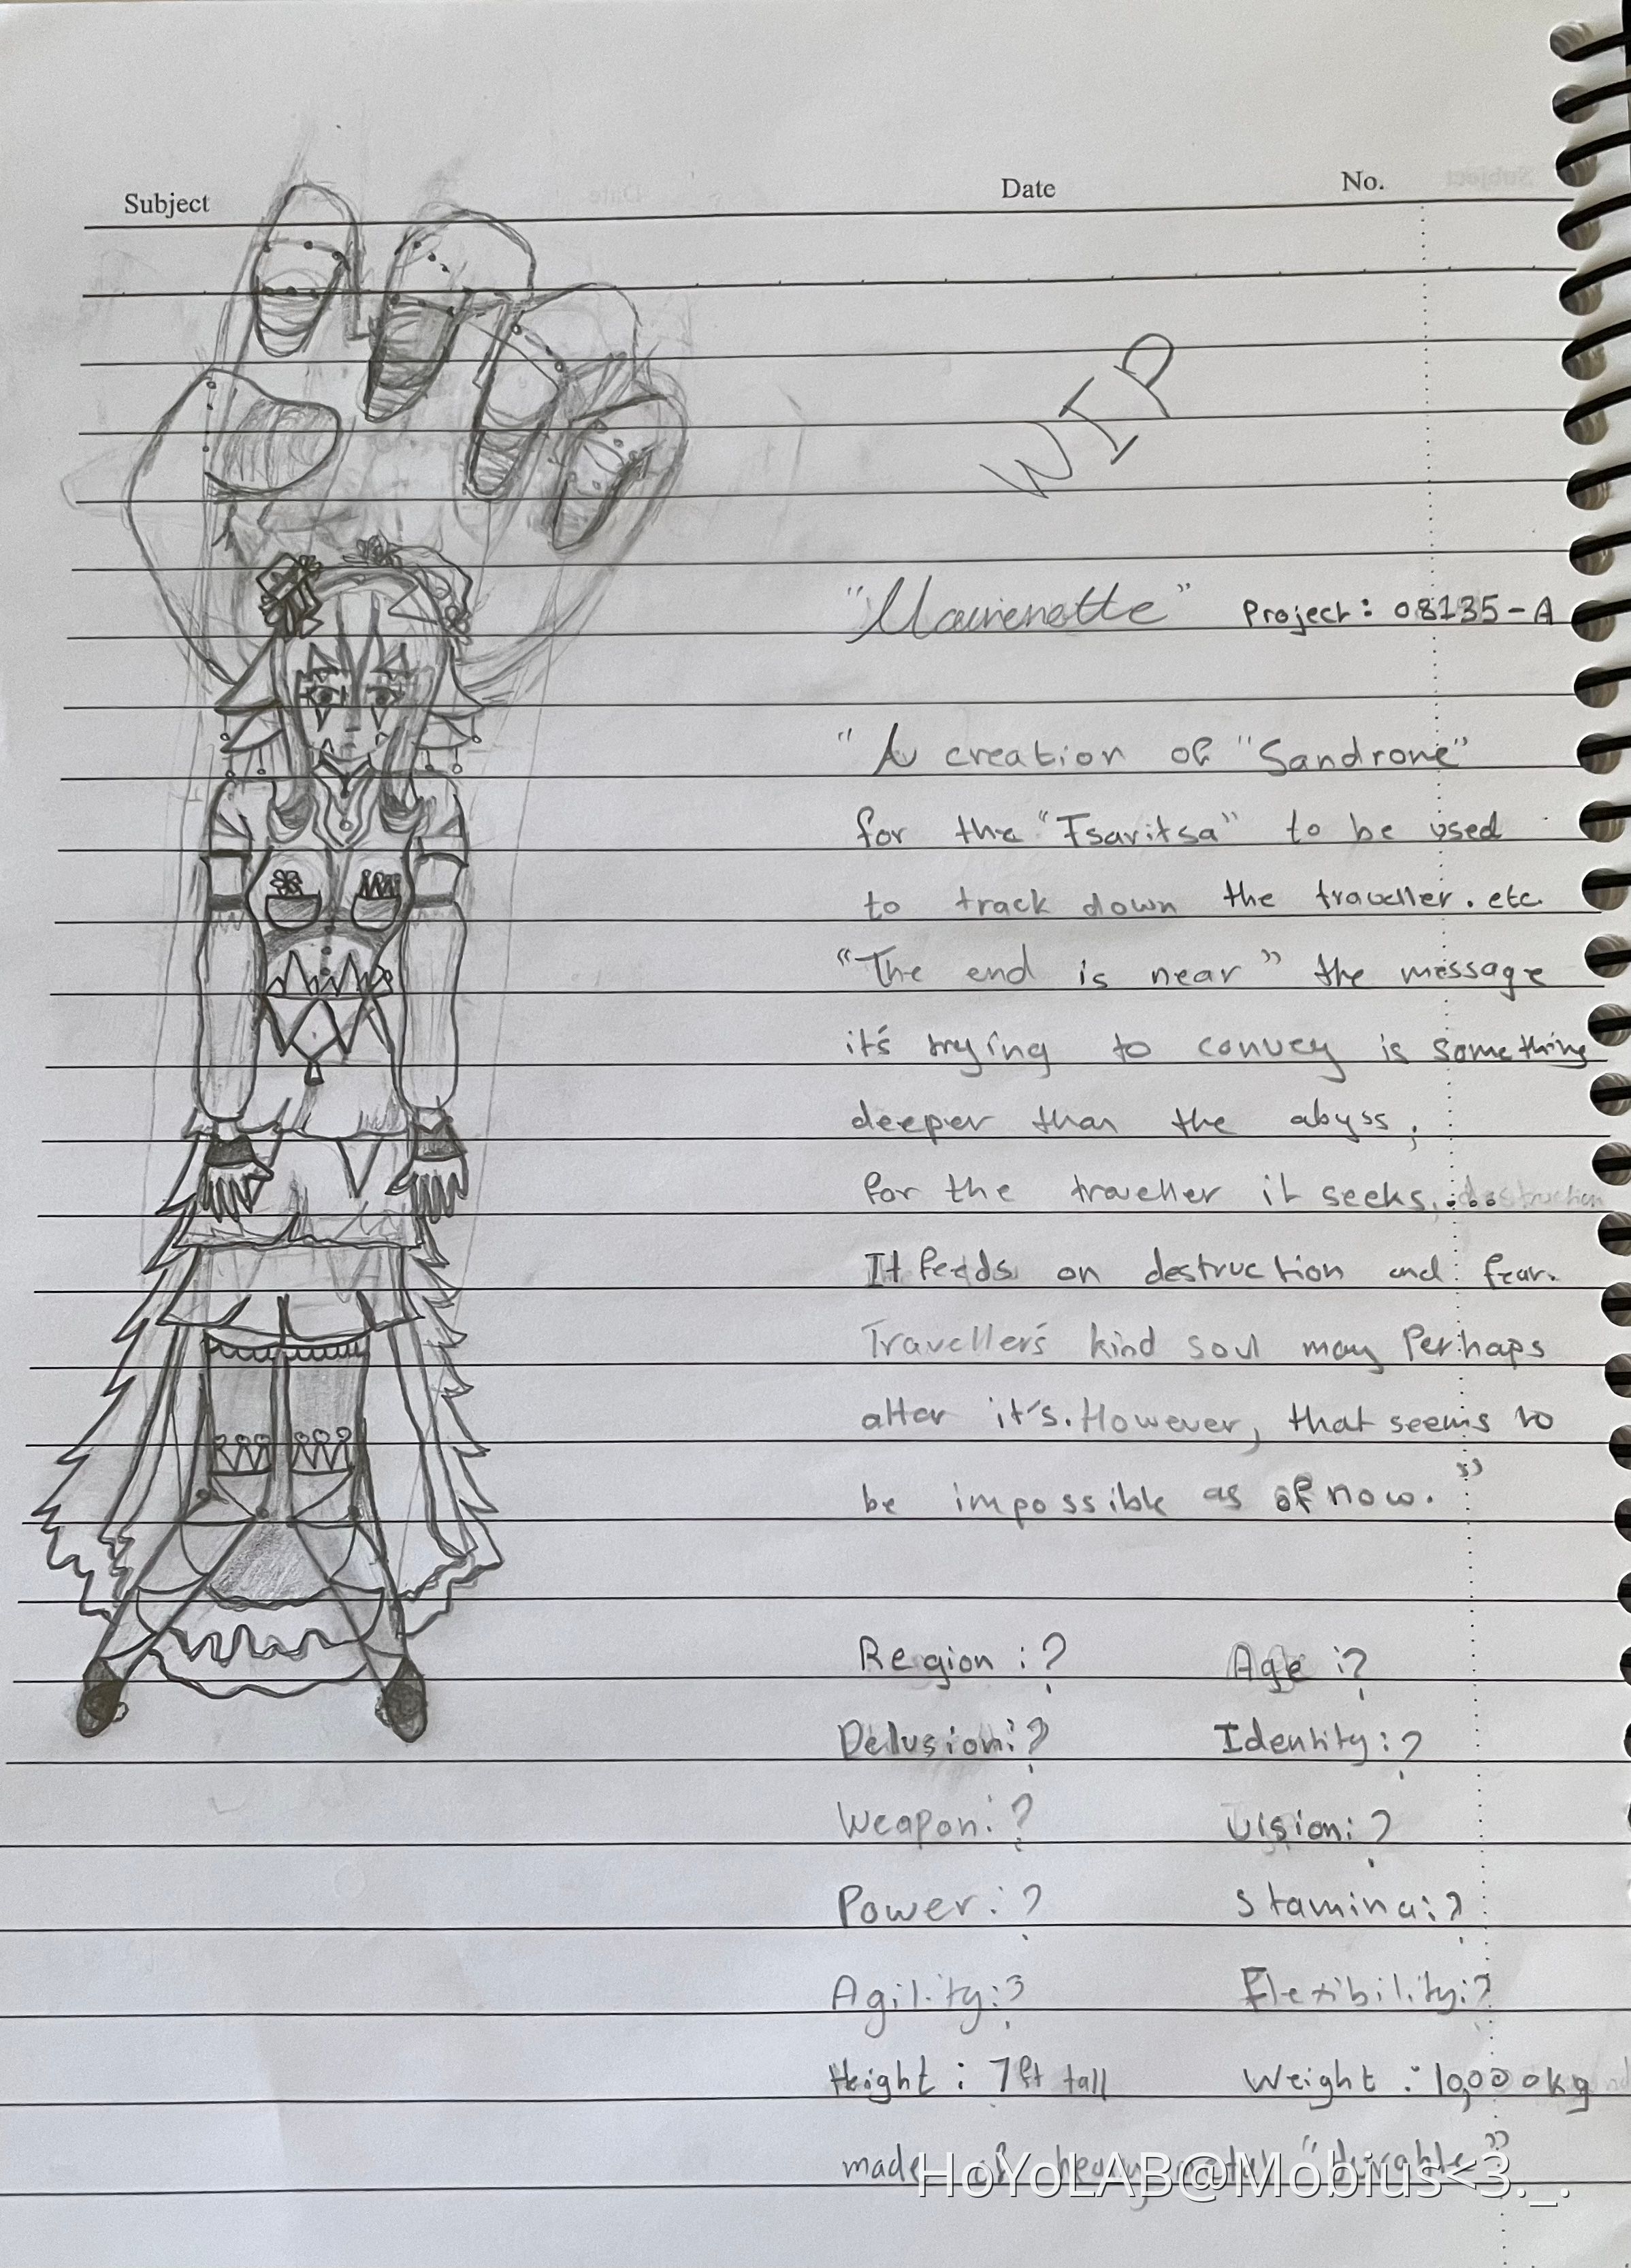 Subject Date No.
WIP
"Marienette" Project: 08135-A
"A creation of "Sandrone"
for the "Tsaritsa" to be used
to track down the traveller. etc
"The end is near" the message
it's trying to convey is something
deeper than the abyss,
for the traveller it seeks,... destruction
It feeds on destruction and fear.
Traveller's kind soul may Perhaps
alter it's. However, that seems to
be impossible as of now."
Region :? Age :?
Delusion:? Identity:?
Weapon:? Vision:?
Power:? Stamina:?
Agility:? Flexibility:?
Height : 7ft tall Weight : 10,000kg
made of heavy "durable"
HoYoLAB@Mobius<3._.